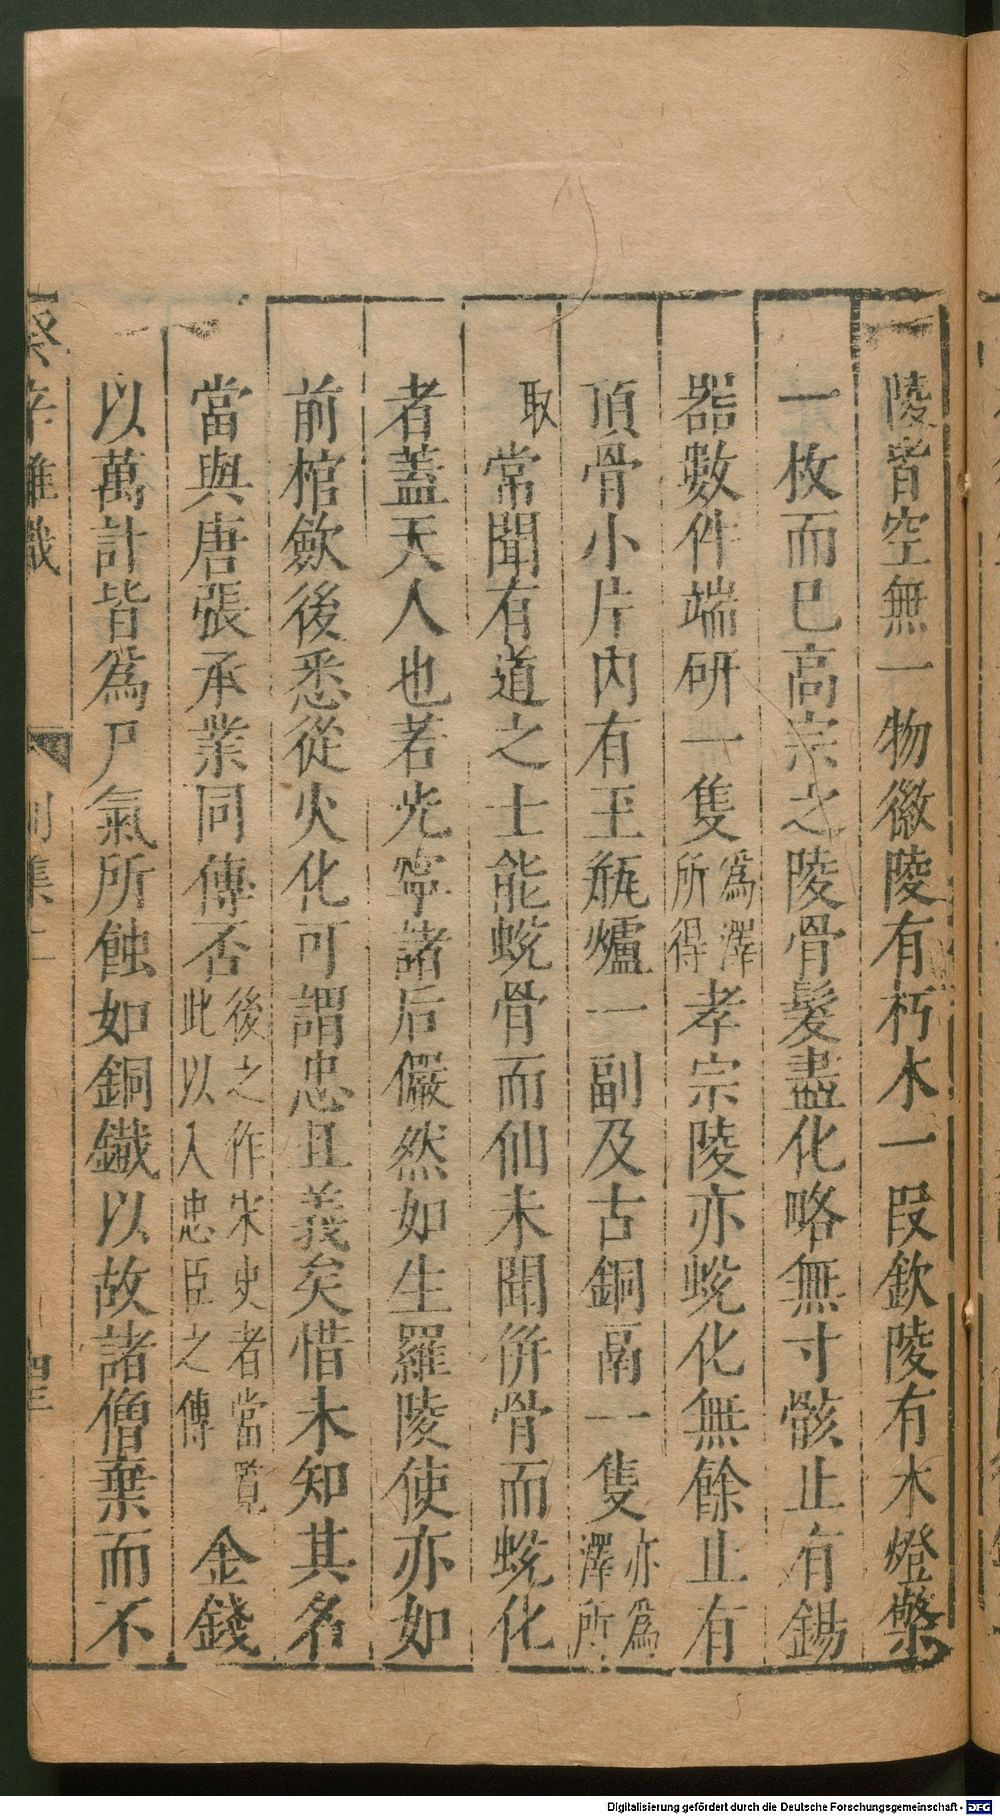 陵皆空無一物徽陵有朽木一段欽陵有木燈檠
一枚而已高宗之陵骨髮盡化略無寸骸止有錫
器數件端硯一隻為澤所得孝宗陵亦蛻化無餘止有
頂骨小片內有玉瓶爐一副及古銅鬲一隻亦為澤所
取常聞有道之士能蛻骨而仙未聞併骨而蛻化
者蓋天人也若光寧諸后儼然如生羅陵使亦如
前棺歛後悉從火化可謂忠且義矣惜未知其名
當與唐張承業同傳否後之作宋史者當覽此以入忠臣之傳金錢
以萬計皆為尸氣所蝕如銅鐵以故諸僧棄而不
癸辛雜識
別集上
Digitalisierung gefördert durch die Deutsche Forschungsgemeinschaft - DFG